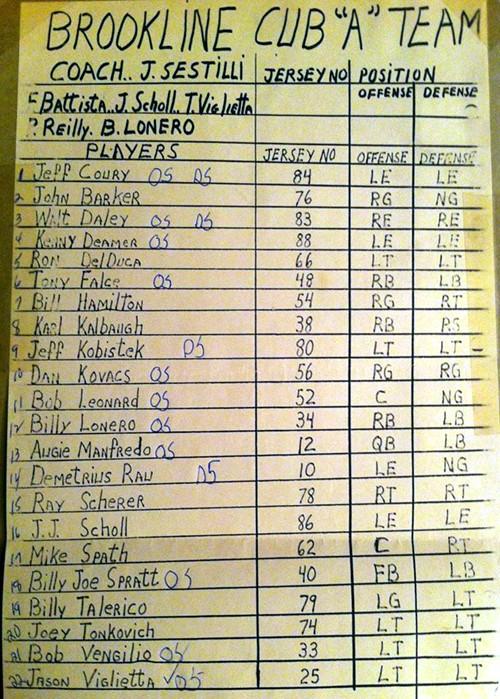 BROOKLINE CUB "A" TEAM
COACH.. J. SESTILLI JERSEY NO POSITION
OFFENSE DEFENSE
F. Battista.. J. Scholl.. T. Viglietta
P. Reilly. B. LONERO
PLAYERS JERSEY NO OFFENSE DEFENSE
1 Jeff Coury OS DS 84 LE LE
2 John Barker 76 RG NG
3 Walt Daley OS DS 83 RE RE
4 Kenny Deamer OS 88 LE LE
5 Ron DelDuca 66 LT LT
6 Tony Falce OS 48 RB LB
7 Bill Hamilton 54 RG RT
8 Karl Kalbaugh 38 RB
9 Jeff Kobistek DS 80 LT LT
10 Dan Kovacs OS 56 RG RG
11 Bob Leonard OS 52 C NG
12 Billy Lonero OS 34 RB LB
13 Augie Manfredo OS 12 QB LB
14 Demetrius Raw DS 10 LE NG
15 Ray Scherer 78 RT RT
16 J.J. Scholl 86 LE LE
17 Mike Spath 62 C RT
18 Billy Joe Spratt OS 40 FB LB
19 Billy Talerico 79 LG LT
20 Joey Tonkovich 74 LT LT
21 Bob Vengilio OS 33 LT LT
22 Jason Viglietta ✓DS 25 LT LT